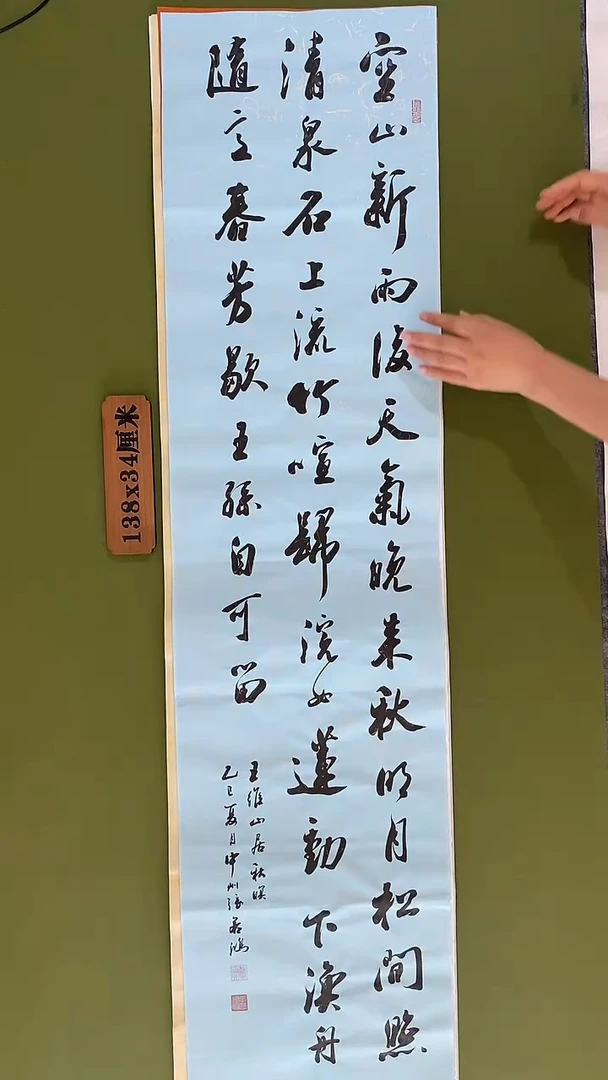 空山新雨後天氣晚来秋明月松間照
清泉石上流竹喧歸浣女蓮動下漁舟
隨意春芳歇王孫自可留
王維山居秋暝
乙巳夏月中州張
138x34厘米